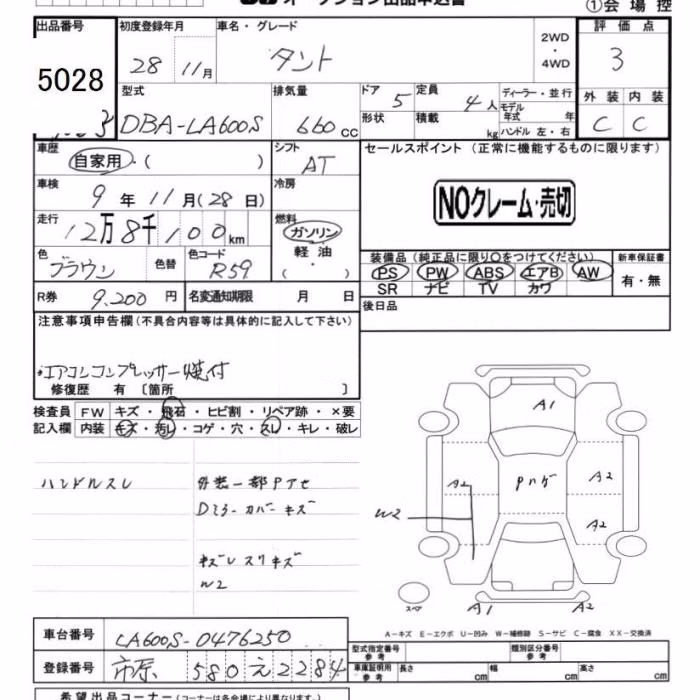 オークション出品申込書
①会場控
出品番号 初度登録年月 車名・グレード 2WD・4WD 評価点
5028 28 11月 タント 3
型式 排気量 ドア 5 定員 4人 ディーラー・並行 外装 内装
DBA-LA600S 660cc 形状 積載 kg モデル年式 年 ハンドル 左・右 C C
車歴 自家用・( ) シフト AT セールスポイント(正常に機能するものに限ります)
車検 9年11月(28日) 冷房
NOクレーム・売切
走行 12万8千100km 燃料 ガソリン・軽油・( )
色 ブラウン 色替 色コード R59 装備品(純正品に限り○をつけてください) 新車保証書
PS PW ABS エアB AW 有・無
SR ナビ TV カワ
R券 9,200円 名変通知期限 月 日 後日品
注意事項申告欄(不具合内容等は具体的に記入して下さい)
エアコンコンプレッサー焼付
修復歴 有〔箇所 〕
検査員 FW キズ・飛石・ヒビ割・リペア跡・×要
記入欄 内装 キズ・汚レ・コゲ・穴・スレ・キレ・破レ
ハンドルスレ 外装一部Pアセ
Dミラーカバーキズ
キズレスリキズ
W2
A1
A2 Pハゲ A2
W2 A2
スペア A1 A2
A-キズ E-エクボ U-凹み W-補修跡 S-サビ C-腐食 XX-交換済
車台番号 LA600S-0476250
型式指定番号 参考 類別区分番号 参考
登録番号 市原 580 え 2284
車庫証明用 参考 長さ cm 幅 cm 高さ cm
希望出品コーナー(コーナーは各会場により異なります。)